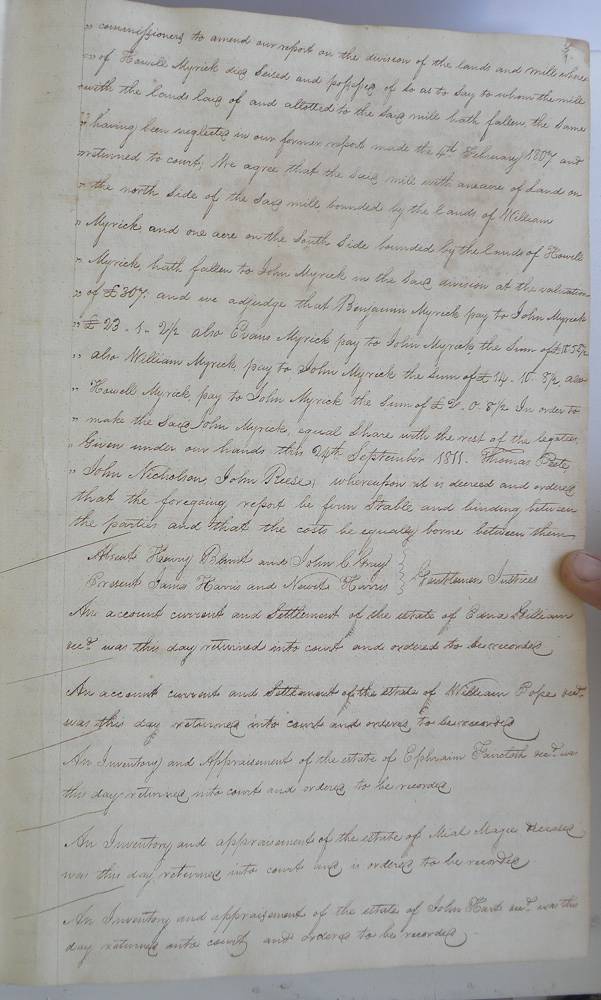 " commissioners to amend our report on the division of the lands and mill where
" of Howell Myrick died Seised and possessed of so as to Say to whom the mill
" with the lands laid of and allotted to the said mill hath fallen, the same
" having been neglected in our former report made the 4th February 1807 and
" returned to court, We agree that the said mill with an acre of Land on
" the north Side of the said mill bounded by the lands of William
" Myrick and one acre on the South Side bounded by the lands of Howell
" Myrick, hath fallen to John Myrick in the said division at the valuation
" of £307. and we adjudge that Benjamin Myrick pay to John Myrick
" £23-1-2½ also Evans Myrick pay to John Myrick, the Sum of
" also William Myrick, pay to John Myrick the Sum of £14-10-8½ also
" Howell Myrick, pay to John Myrick the Sum of £ 0. 8½ In order to
" make the Said John Myrick, equal Share with the rest of the legatees,
" Given under our hands this 24th September 1811. Thomas Pete,
" John Nicholson, John Reese, whereupon it is decreed and ordered
that the foregoing report be firm Stable and binding between
the parties and that the costs be equally borne between them
Absent Henry and John C Gray
Present James Harris and Newit Harris } Gentlemen Justices
An account current and Settlement of the estate of William
decd. was this day returned into court and ordered to be recorded
An account current and Settlement of the estate of William Pope decd.
was this day returned into court and ordered to be recorded
An Inventory and Appraisement of the estate of Ephraim decd. was
this day returned into court and ordered to be recorded
An Inventory and appraisement of the estate of Mial Magee deceased
was this day returned into court and is ordered to be recorded
An Inventory and appraisement of the estate of John Hart decd. was this
day returned into court and ordered to be recorded